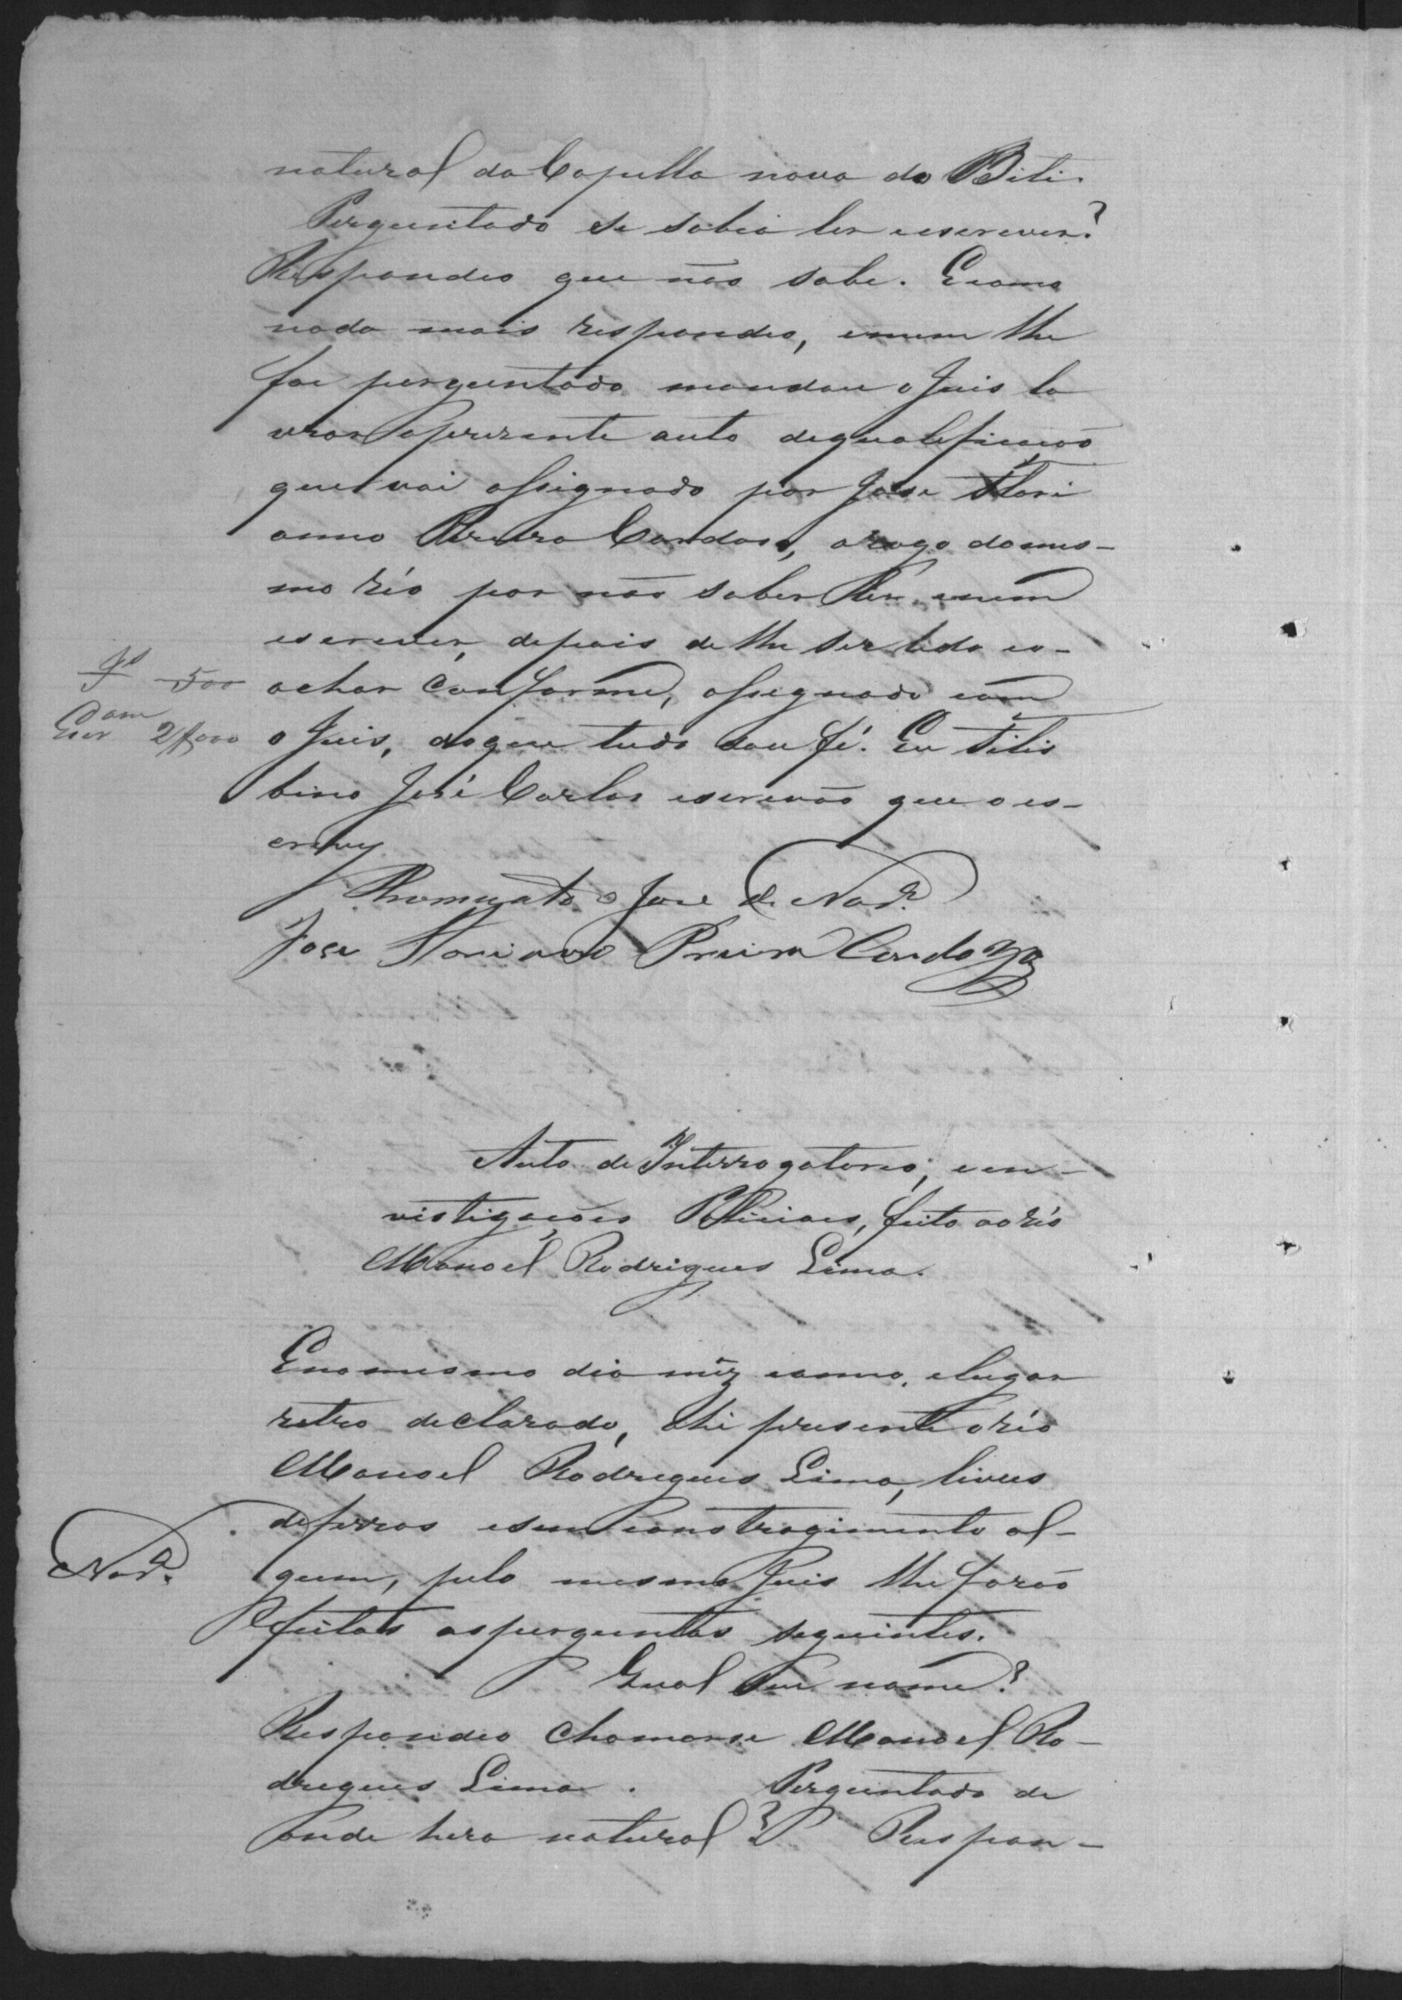 natural da Capella nova do Biti.
Perguntado se sabia ler eescrever?
Respondeo que não sabe. Ecomo
nada mais respondeo, enem lhe
foi perguntado mandou o Juis la
vrar opresente auto dequalificação
que vai assignado por Jose Flori
anno Pereira Cardoso, arogo domes-
mo réo por não saber ler, enem
escrever, depois de lhe ser lido eo-
achar conforme, assignado com
o Juis, doque tudo dou fé. Eu Felis
bino José Carlos escrivão que oes-
crevy
Js 500
Dam
Escr 2$000
José de Nod.ª
Jose Floriano Pereira Cardozo
Auto de Interrogatorio, ein-
vistigações Policiaes, feito ao réo
Manoel Rodrigues Lima.
Enomesmo dia mez eanno, elugar
retro declarado, ahi presente o réo
Manoel Rodrigues Lima, livres
deferros esem constrangimento al-
gum, pelo mesmo Juis lhe forão
feitas asperguntas seguintes.
Nod.ª
Qual seu nome?
Respondeo chamarse Manoel Ro-
drigues Lima. Perguntado de
onde hera natural? Respon-